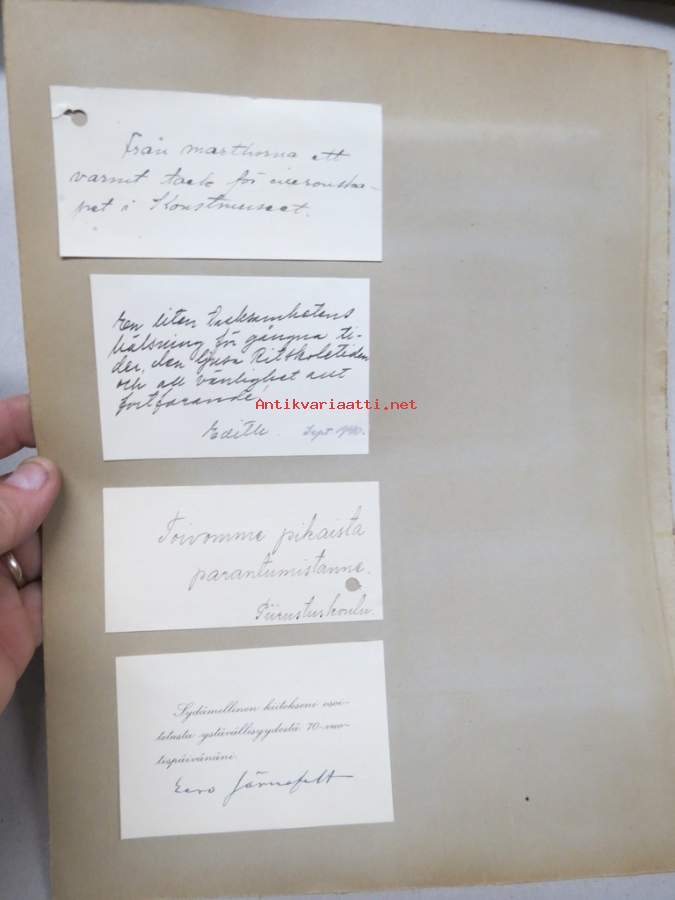 Från marthorna ett
varmt tack för ciceronska-
pet i Konstmuseet.
En liten tacksamhetens
hälsning för gångna ti-
der, den ljusa Ritskoletiden
och all vänlighet allt
fortfarande,
Antikvariaatti.net
Edith. Sept 1940.
Toivomme pikaista
parantumistanne.
Piirustuskoulu.
Sydämellinen kiitokseni osoi-
tetusta ystävällisyydestä 70-vuo-
tispäivänäni.
Eero Järnefelt